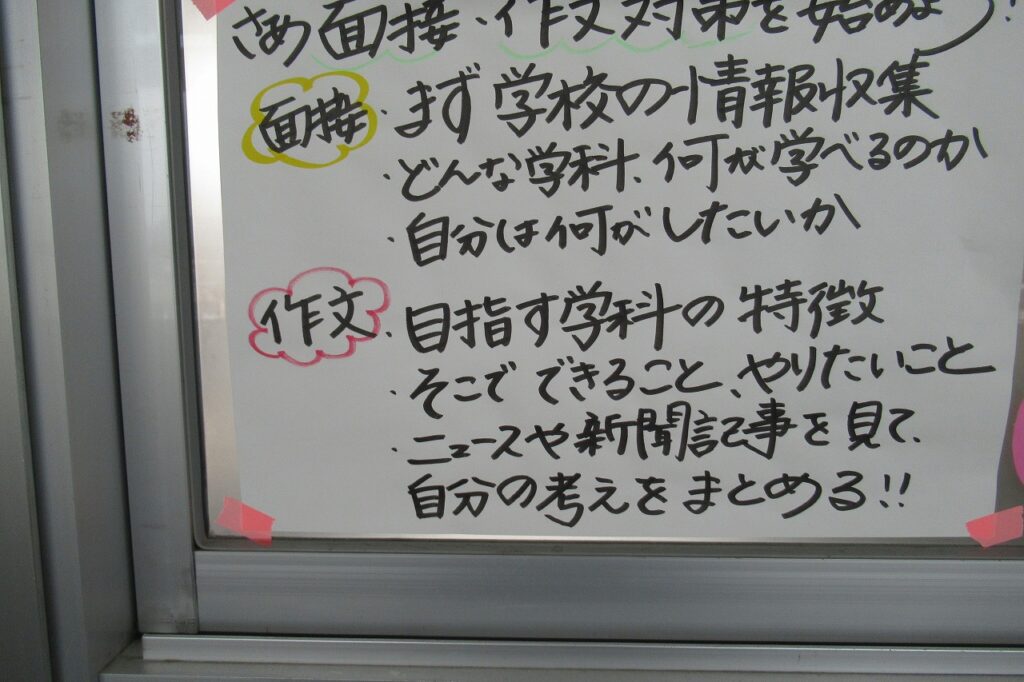 さあ面接・作文対策を始めよう!
面接
・まず学校の情報収集
・どんな学科、何が学べるのか
・自分は何がしたいか
作文
・目指す学科の特徴
・そこでできること、やりたいこと
・ニュースや新聞記事を見て、
自分の考えをまとめる!!